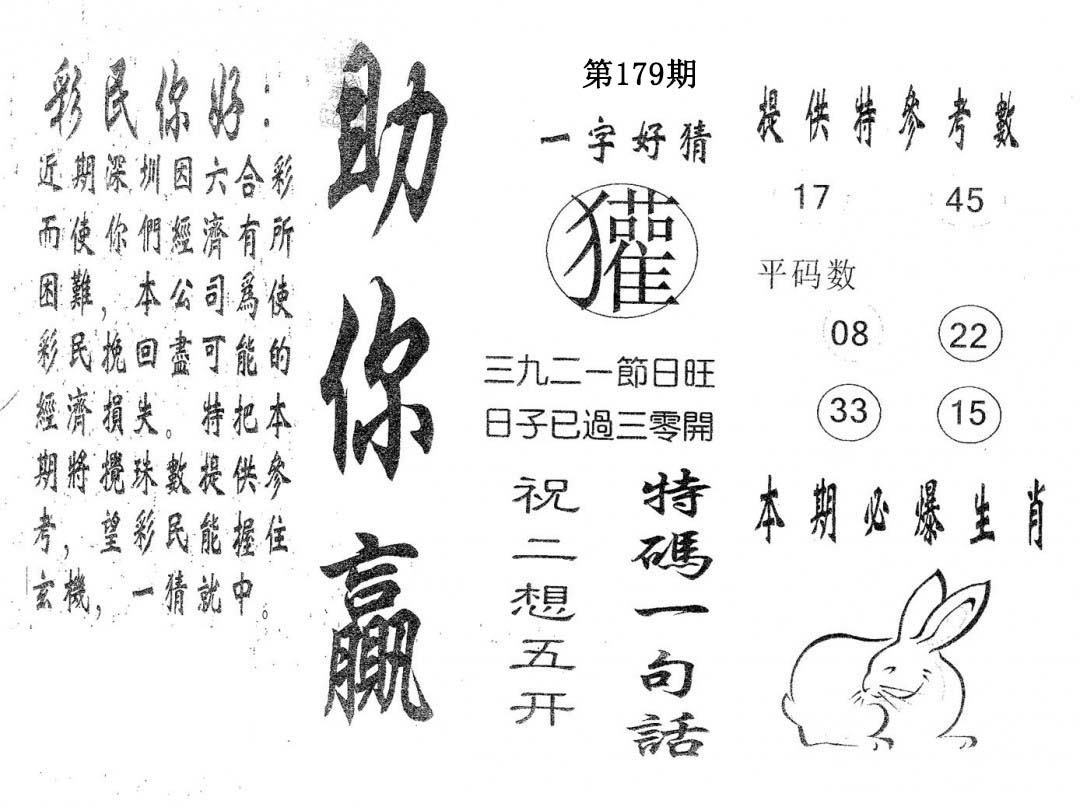 彩民你好：
近期深圳因六合彩
而使你們經濟有所
困難，本公司爲使
彩民挽回盡可能的
經濟損失。特把本
期將攪珠數提供參
考，望彩民能握住
玄機，一猜就中。
助你贏
第179期
一字好猜
獾
三九二一節日旺
日子已過三零開
特碼一句話
祝二想五开
提供特參考數
17 45
平码数
08 22
33 15
本期必爆生肖